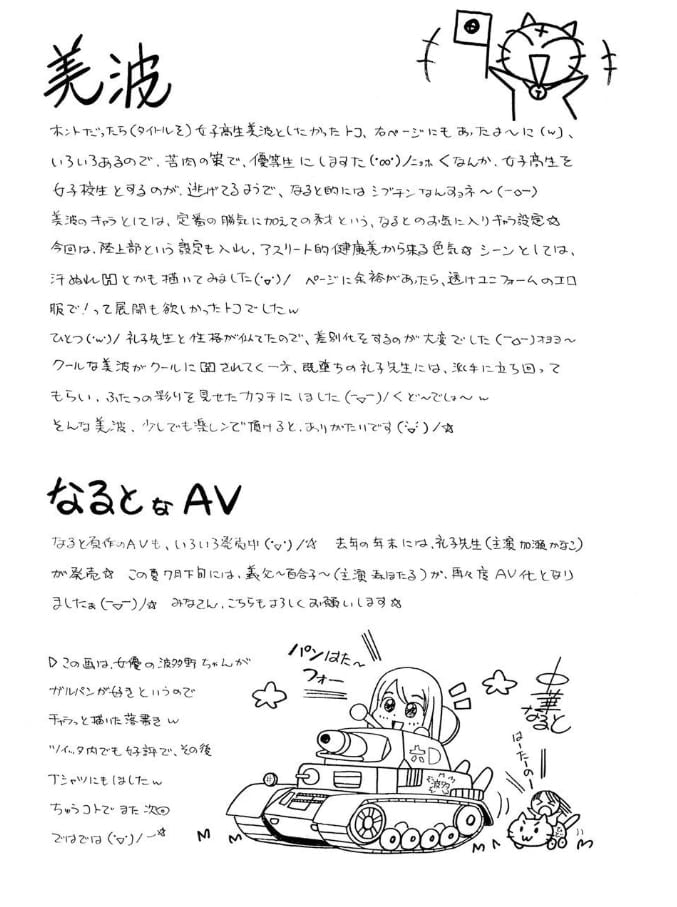 美波
ホントだったら(タイトルを)女子高生美波としたかったトコ、右ページにもあったよーに(w)、
いろいろあるので、苦肉の策で、優等生にしますた(°∞°)/ﾆｯﾎ くなんか、女子高生を
女子校生とするのが、逃げてるようで、なると的にはシブチンなんすョネ〜(-o-)
美波のキャラとしては、定番の勝気に加えての秀才という、なるとのお気に入りキャラ設定☆
今回は、陸上部という設定も入れ、アスリート的健康美から来る色気☆ シーンとしては、
汗ぬれHとかも描いてみました(°▽°)/ ページに余裕があったら、透けユニフォームのエロ
服で!って展開も欲しかったトコでしたw
ひとつ(°w°)/ 礼子先生と性格が似てたので、差別化をするのが大変でした(-o-)ｵﾖﾖ〜
クールな美波がクールにHされてく一方、既堕ちの礼子先生には、派手に立ち回って
もらい、ふたつの彩りを見せたカタチにしました(-▽-)/くど〜でしょ〜w
そんな美波、少しでも楽しンで頂けると、ありがたいです(°▽°)/☆
なるとなAV
なると原作のAVも、いろいろ発売中(°▽°)/☆ 去年の年末には、礼子先生(主演 加瀬かなこ)
が発売☆ この夏7月下旬には、義父〜百合子〜(主演  ほたる)が、再々度AV化となり
ましたぁ(-▽-)/☆ みなさん、こちらもよろしくお願いします☆
▷この画は、女優の波多野ちゃんが
ガルパンが好きというので
チャラっと描いた落書きw
ツイッタ内でも好評で、その後
Tシャツにもしましたw
ちゅうコトでまた次回
ではでは(°▽°)/ー☆
パンはた〜
フォー
中華
なると
はーたーのー
六D
波多